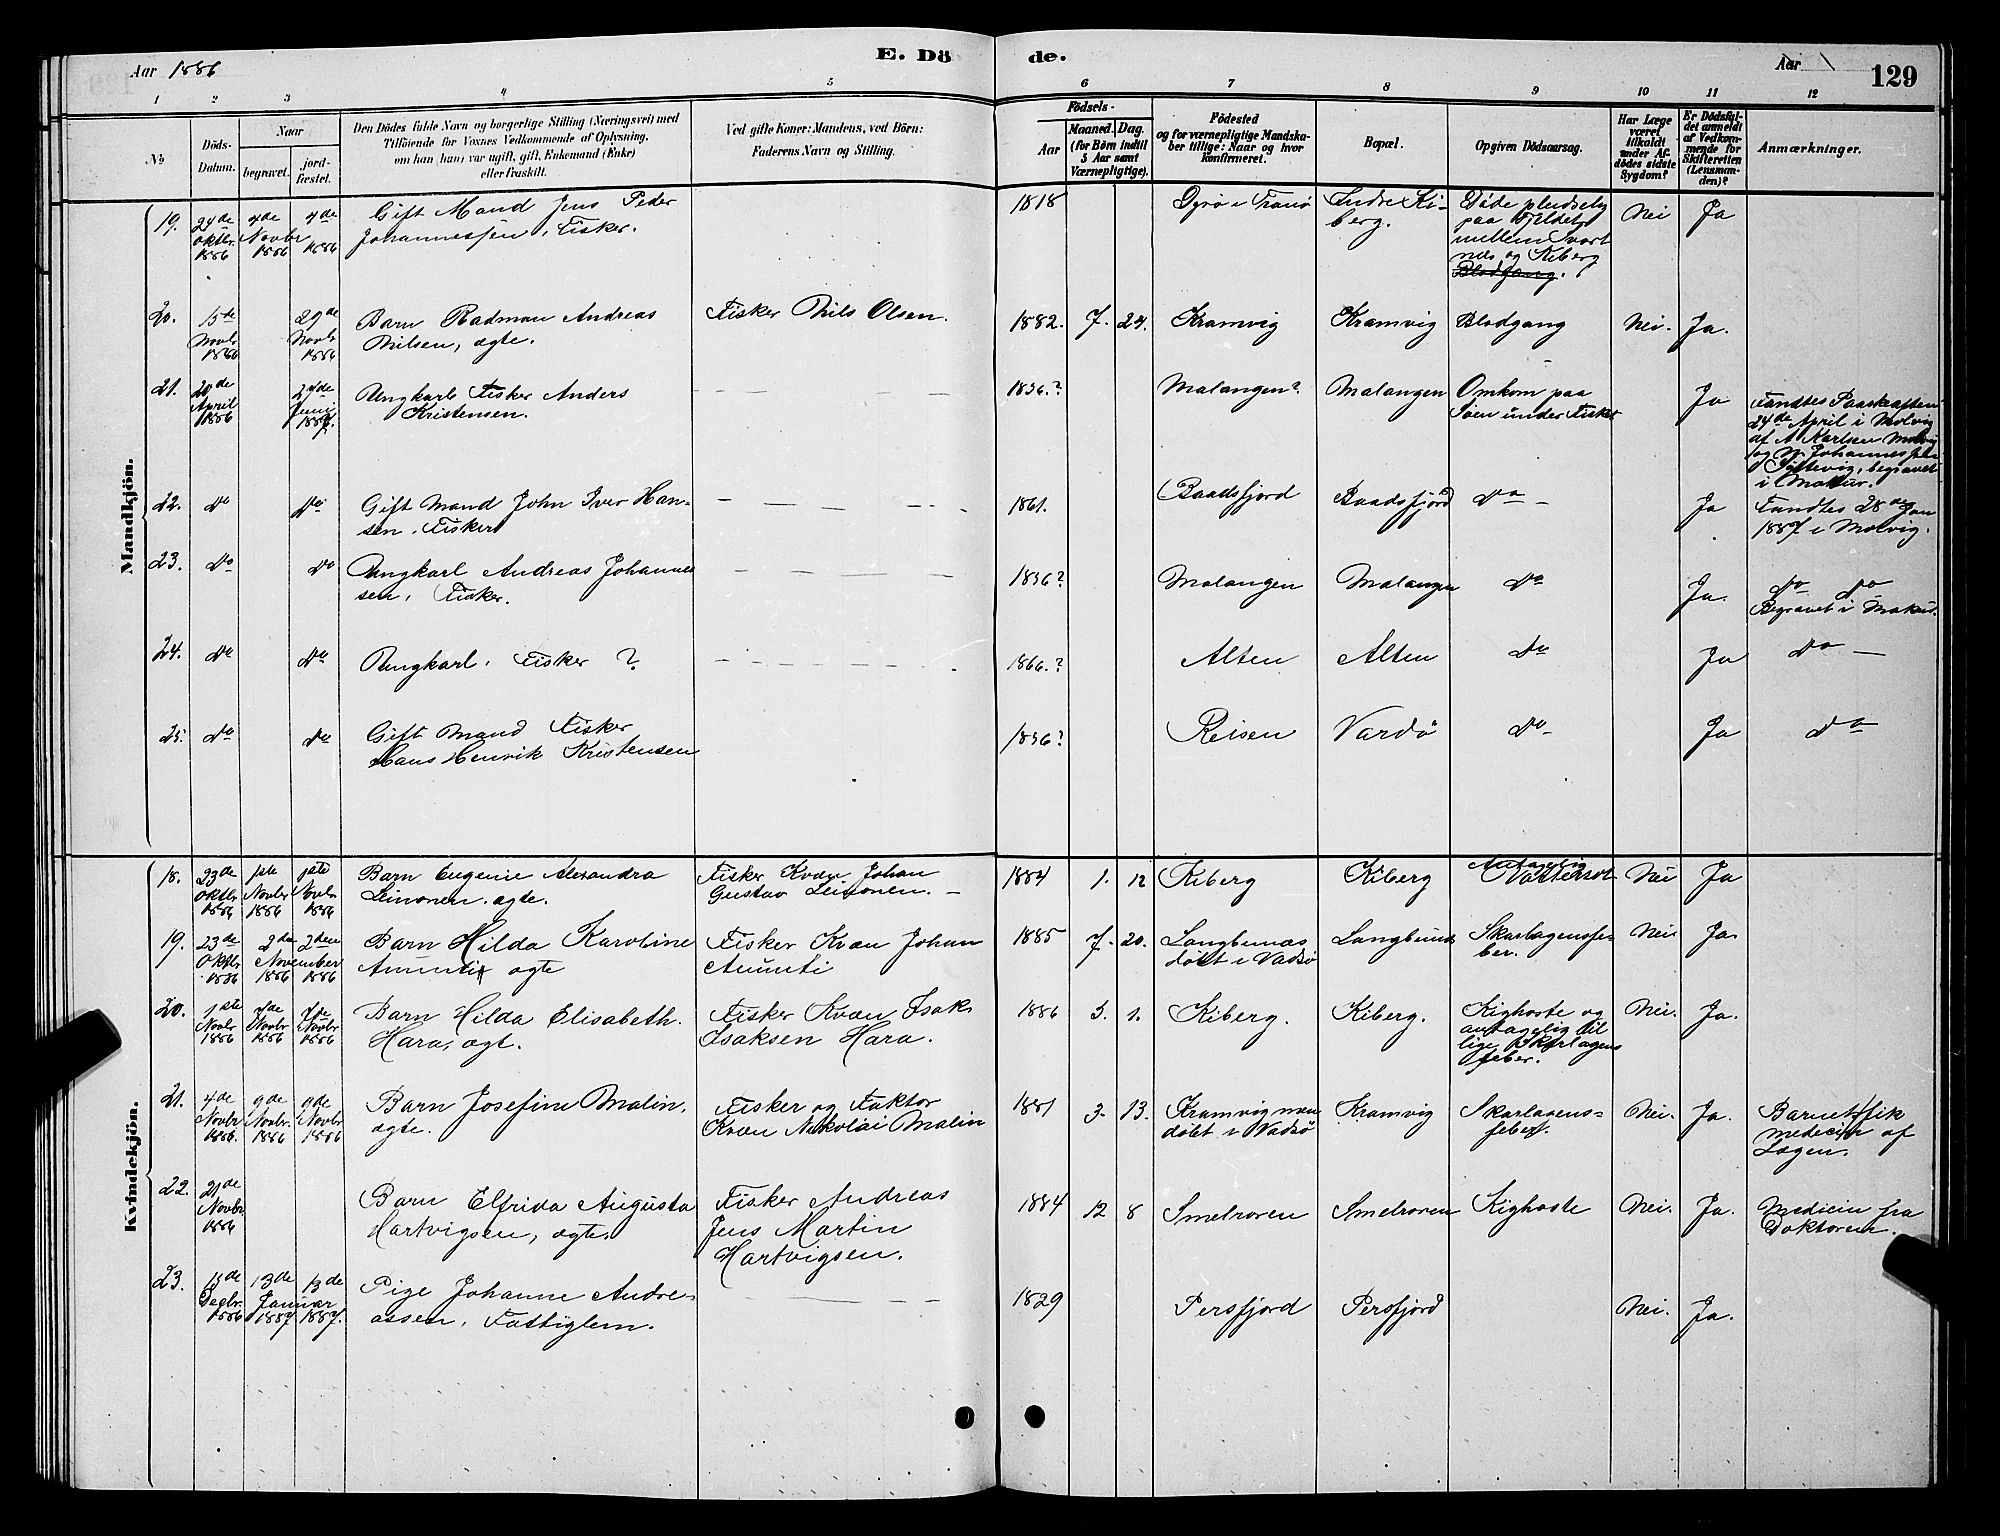 Aar 1886
E. Dö
de.
Aar
129
1 2 3 4 5 6 7 8 9 10 11 12
No
Döds-
Datum.
Naar
begravet.
jord-
fæstet.
Den Dödes fulde Navn og borgerlige Stilling (Næringsvei) med
Tilföiende for Voxnes Vedkommende af Oplysning,
om han (hun) var ugift, gift, Enkemand (Enke)
eller fraskilt.
Ved gifte Koner: Mandens, ved Börn:
Faderens Navn og Stilling.
Födsels-
Aar
Maaned. Dag.
(for Börn indtil
5 Aar samt
Værnepligtige).
Födested
og for værnepligtige Mandska-
ber tillige: Naar og hvor
konfirmeret.
Bopæl.
Opgiven Dödsaarsag.
Har Læge
været
tilkaldt
under Af-
dödes sidste
Sygdom?
Er Dödsfal-
det anmeldt
af Vedkom-
mende for
Skifteretten
(Lensman-
den)?
Anmærkninger.
Mandkjön.
19.
24de
Oktbr.
1886
4de
Novbr
1886
4de
1886
Gift Mand Jens Peder
Johannessen, Fisker.
1818
Dyrö i Tranö
Indre Ki-
berg.
Döde pludselig
paa Fjeldet
mellem Svart
nes og Kiberg
Blodgang.
Nei
Ja
20.
15de
Novbr
1886
29de
Novbr
1886
Barn Radman Andreas
Nilsen, ægte.
Fisker Nils Olsen.
1882. 7. 24.
Kramvig
Kramvig
Blodgang
Nei.
Ja.
21.
20de
April
1886
24de
Juni
1887
Ungkarl Fisker Anders
Kristensen.
1836.?
Malangen?
Malangen
Omkom paa
Söen under Fisket
Ja
Fandtes Paaskeaften
24de April i Molvig
af A Karlsen Molvig
og N. Johannessen
Söltevig, begravet
i Makur.
22.
do
do
Gift Mand John Iver Han-
sen. Fisker
1861.
Baadsfjord
Baadsfjord
do
Ja
Fandtes 28de Jan
1887 i Molvig.
23.
do
do
Ungkarl Andreas Johannes
sen, Fisker.
1836?
Malangen
Malangen
do
Ja.
do do
Begravet i Makur.
24.
do
do
Ungkarl. Fisker ?
1866.?
Alten
Alten
do
Ja
do
25.
do
do
Gift Mand Fisker
Hans Henrik Kristensen
1836?
Reisen
Vardö
do
Ja
do
Kvindekjön.
18.
23de
Oktbr
1886
1ste
Novbr
1886
1ste
Novbr
1886
Barn Eugenie Alexandra
Leinonen. ægte.
Fisker Kvæn Johan
Gustav Leinonen.
1884 1. 12
Kiberg
Kiberg
Antagelig
Nei
Ja
19.
23de
Oktbr
1886
2den
2den
November
1886 1886
Barn Hilda Karoline
Anunti ægte
Fisker Kvæn Johan
Anunti
1885 7. 20.
Langbunæs
döbt i Vadsö
Langbunæs
Skarlagensfe-
ber.
Nei
Ja.
20.
1ste
Novbr
1886
7de
Novbr
1886
7de
Novbr
1886
Barn Hilda Elisabeth
Hara, ægt.
Fisker Kvæn Isak
Isaksen Hara.
1886 3. 1.
Kiberg.
Kiberg.
Kighoste og
antagelig til
lige Skarlagens
feber.
Nei.
Ja.
21.
4de
Novbr
1886.
9de
Novbr.
1886
9de
Novbr
1886
Barn Josefine Malin.
ægte.
Fisker og Faktor
Kvæn Nikolai Malin
1881 3. 13.
Kramvig men
döbt i Vadsö
Kramvig
Skarlagens-
feber.
Nei.
Ja.
Barnet fik
medecin af
Lægen.
22.
21de
Novbr
1886
Barn Elfrida Augusta
Hartvigsen, ægte.
Fisker Andreas
Jens Martin
Hartvigsen.
1884 12 8
Smelroren
Smelroren
Kighoste
Nei.
Ja.
Medicin fra
Doktoren.
23.
15de
Decbr.
1886
13de
13de
Januar
1887 1887.
Pige Johanne Andre-
assen, Fattiglem.
1829
Persfjord
Persfjord
Nei.
Ja.